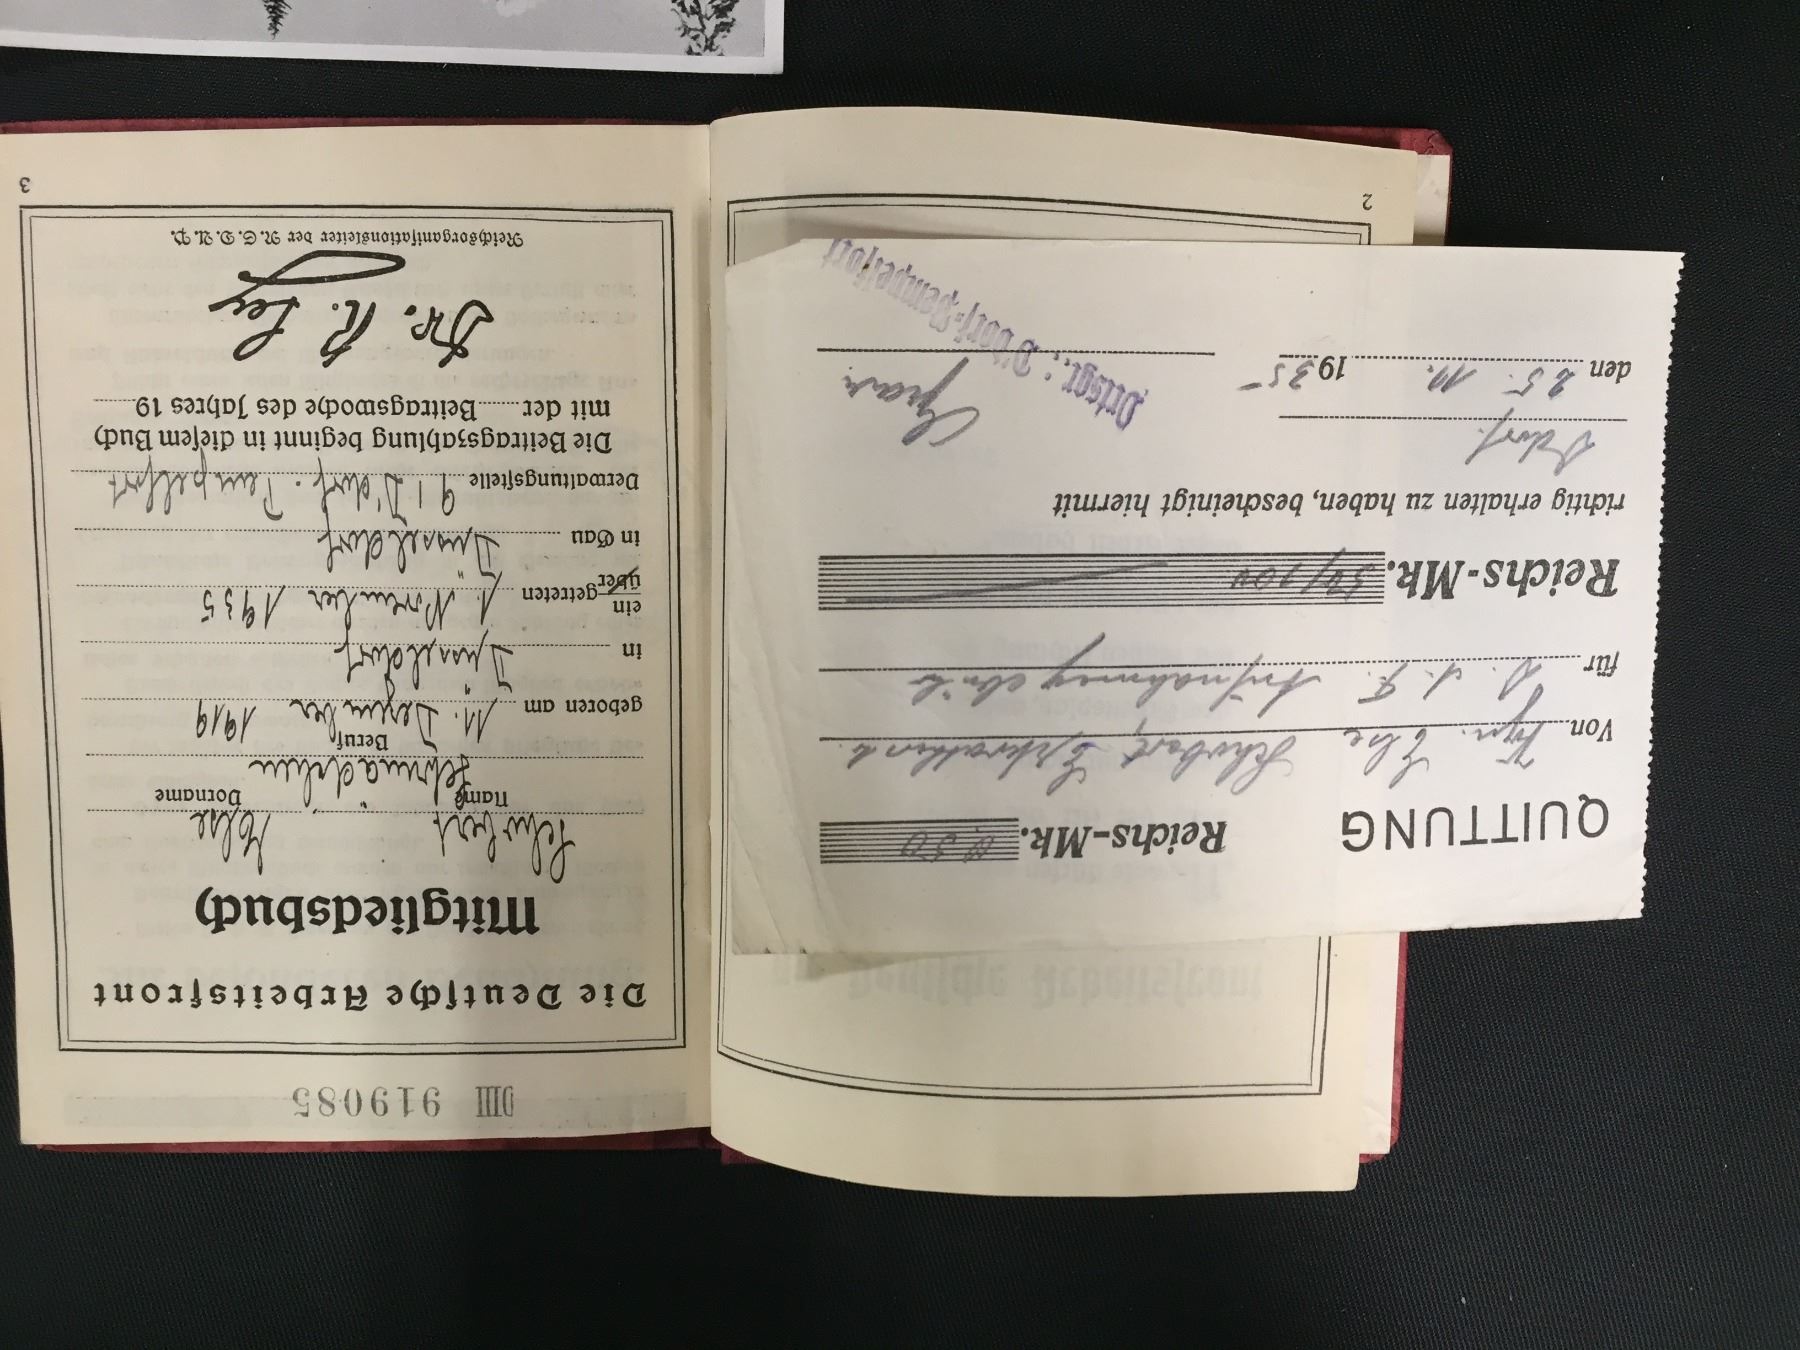 DIII 919085
Die Deutsche Arbeitsfront
Mitgliedsbuch
Schubert Else
Name Vorname
Lehrmädchen
Beruf
geboren am 11. Dezember 1919
in Düsseldorf
ein
über getreten 1. November 1935
in Gau Düsseldorf
Verwaltungsstelle 91 D'dorf-Pempelfort
Die Beitragszahlung beginnt in diesem Buch
mit der Beitragswoche des Jahres 19
Dr. R. Ley
Reichsorganisationsleiter der N.S.D.A.P.
3
QUITTUNG Reichs-Mk. 0,50
Von Else Schubert,
für D. A. F. Aufnahmegebühr
Reichs-Mk. 50/100
richtig erhalten zu haben, bescheinigt hiermit
D'dorf.
den 25. 11. 1935
Ortsgr.: D'dorf-Pempelfort
2